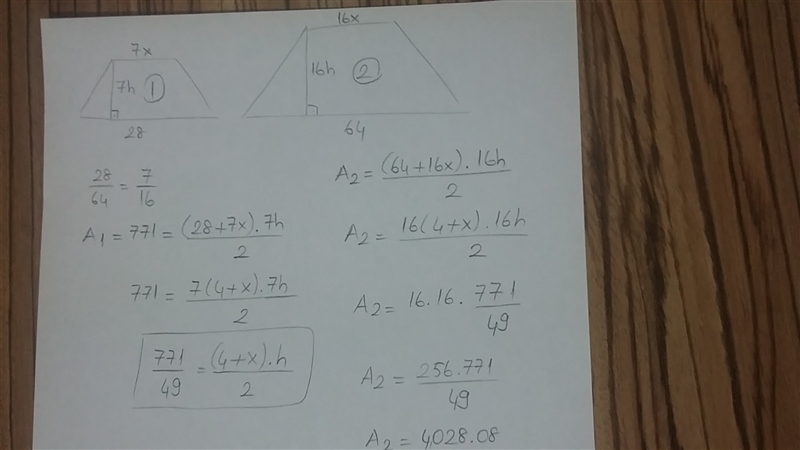 7x
7h ①
28
16x
16h ②
64
28/64 = 7/16
A₁ = 771 = (28+7x).7h/2
771 = 7(4+x).7h/2
771/49 = (4+x).h/2
A₂ = (64+16x).16h/2
A₂ = 16(4+x).16h/2
A₂ = 16.16.771/49
A₂ = 256.771/49
A₂ = 4028.08